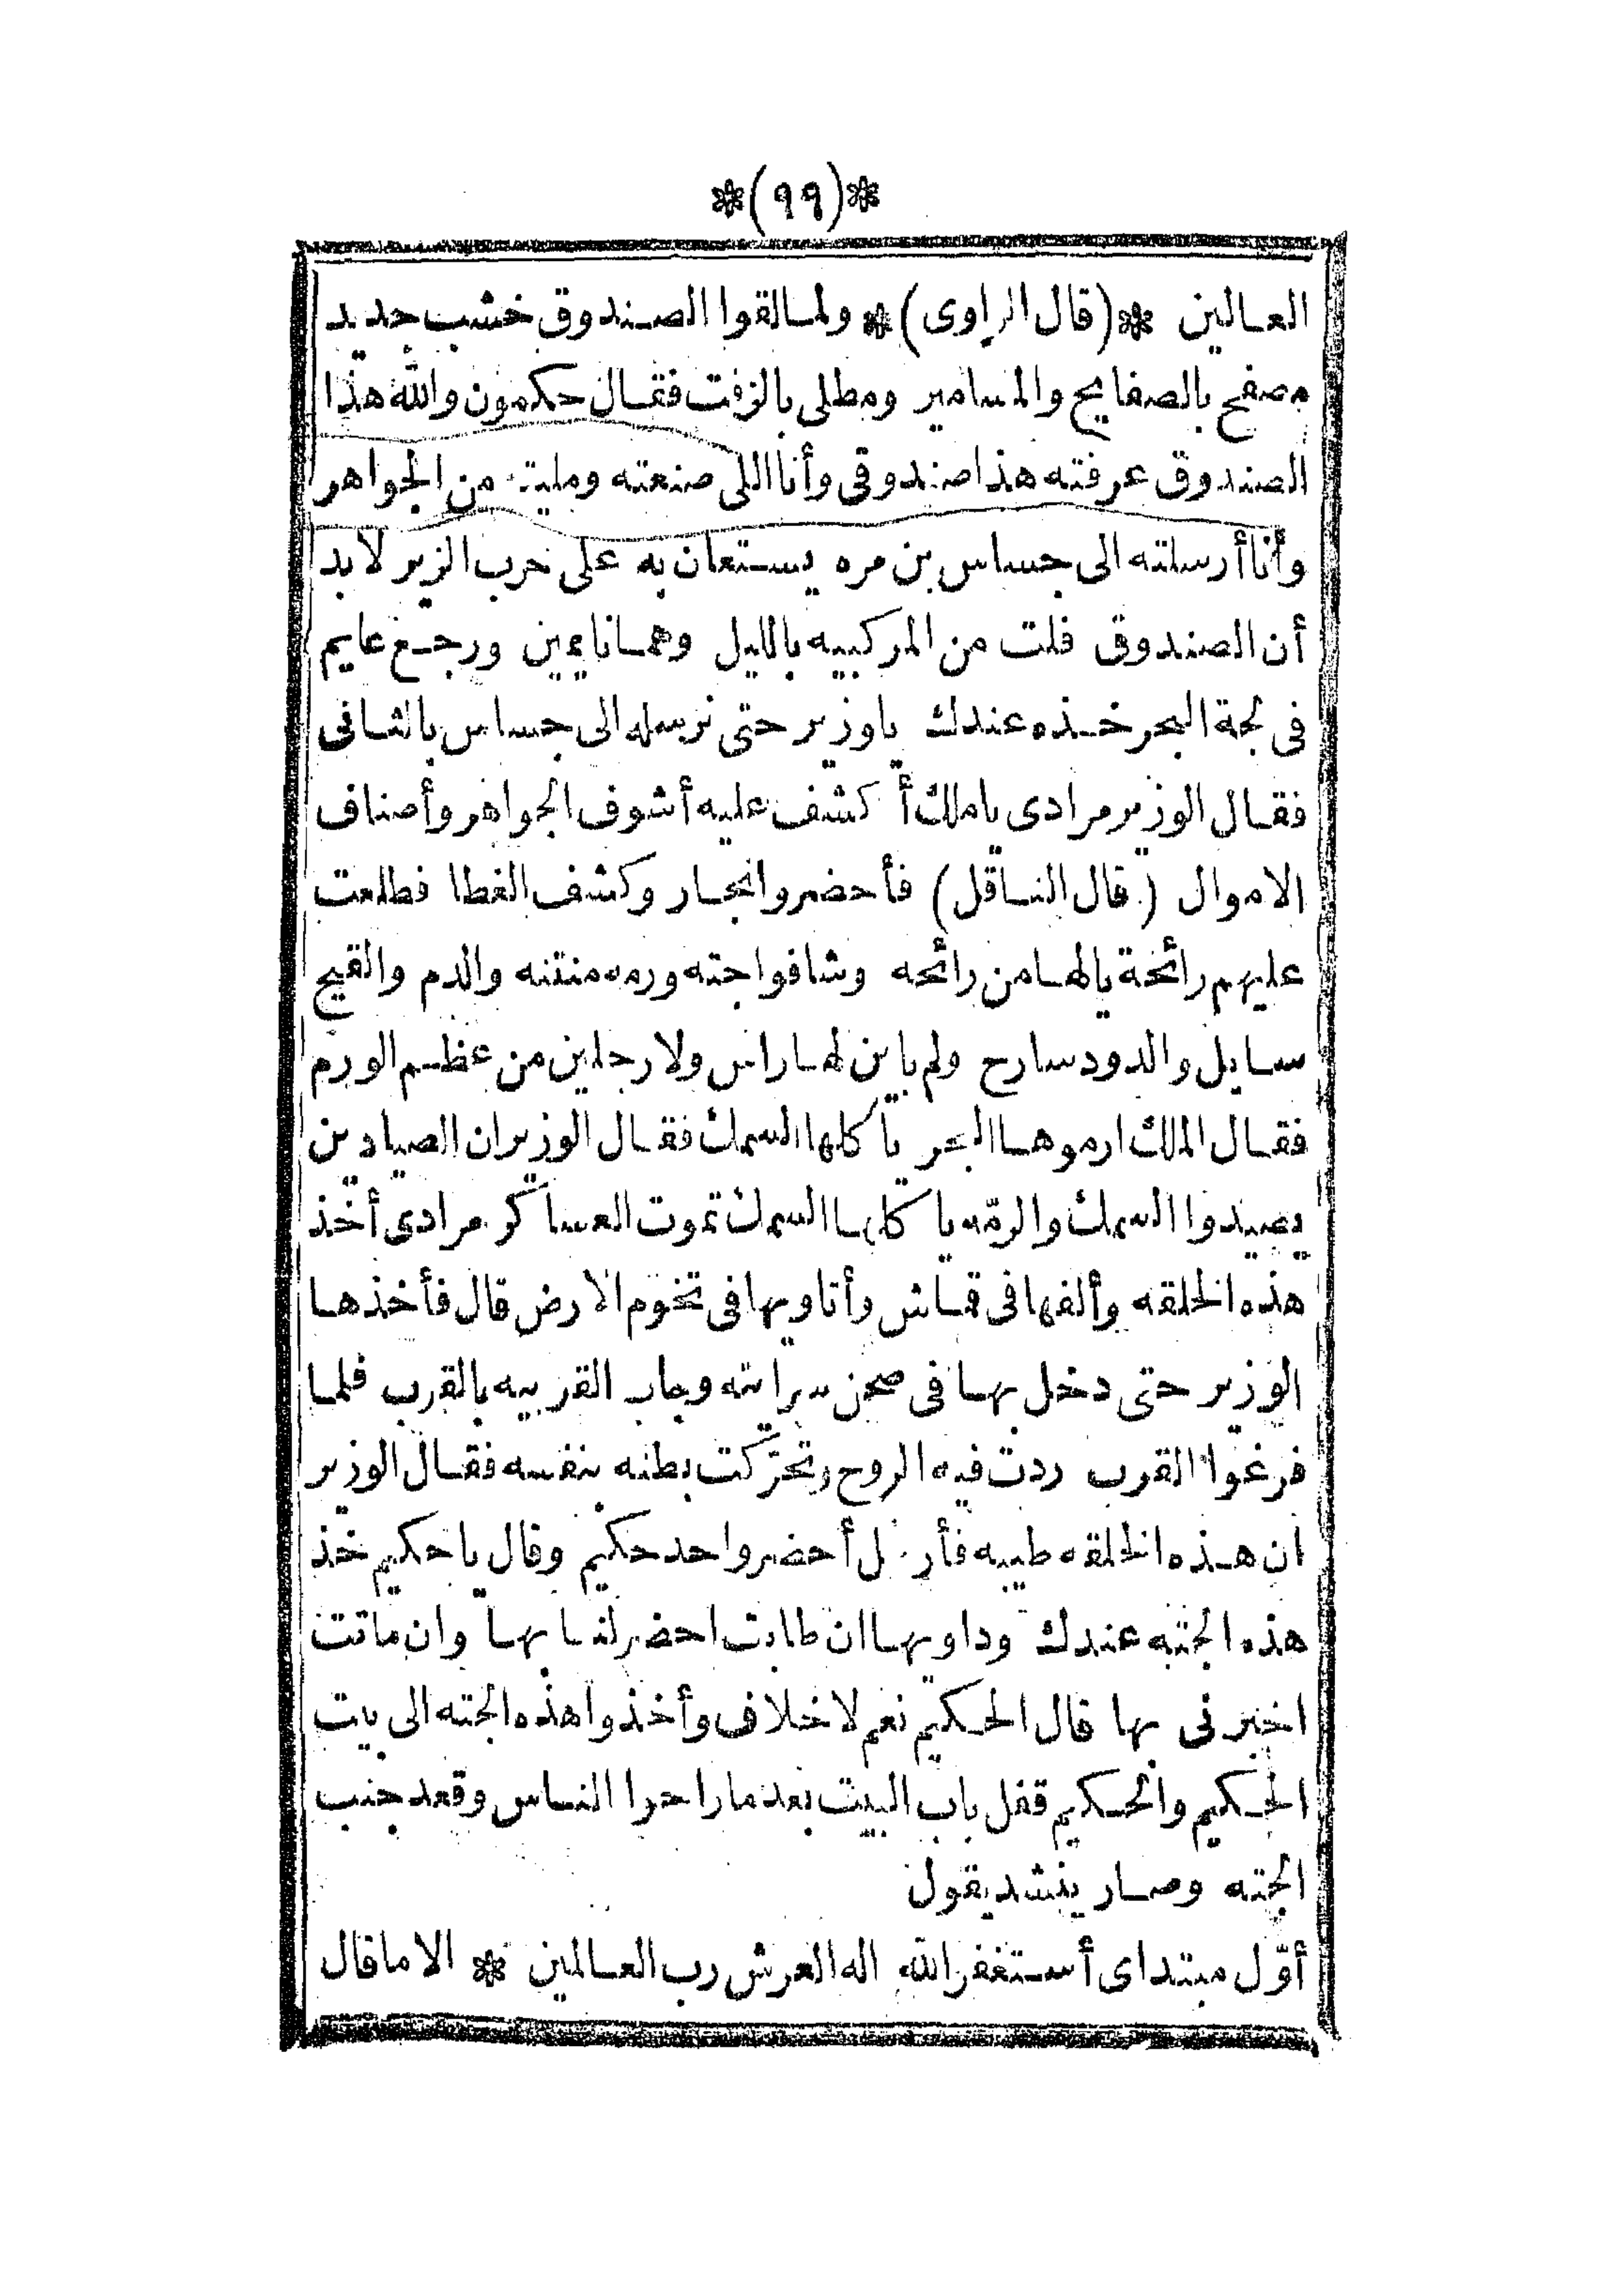 *(٩٩)*
العالمين *(قال الراوى)* ولما لقوا الصندوق خشب جديد
مصفح بالصفايح والمسامير ومطلى بالزفت فقال حكمون والله هذا
الصندوق عرفته هذا صندوقى وأنا اللى صنعته ومليته من الجواهر
وأنا أرسلته الى جساس بن مره يستعان به على حرب الزير لابد
أن الصندوق فلت من المركبيه بالليل وهما نايمين ورجع عايم
فى لجة البحر خذه عندك ياوزير حتى نرسله الى جساس بالثانى
فقال الوزير مرادى ياملك أكشف عليه أشوف الجواهر وأصناف
الاموال (قال الناقل) فأحضروا نجار وكشف الغطا فطلعت
عليهم رائحة يالها من رائحه وشافوا جته ورمه منتنه والدم والقيح
سايل والدود سارح ولم باين لها راس ولا رجلين من عظم الورم
فقال الملك ارموها البحر يأكلها السمك فقال الوزير ان الصيادين
يصيدوا السمك والرمّه ياكلها السمك تموت العساكر مرادى أخذ
هذه الخلقه وألفها فى قماش وأتاويها فى تخوم الارض قال فأخذها
الوزير حتى دخل بها فى صحن سرايته وجاب القربيه بالقرب فلما
فرغوا القرب ردت فيه الروح وتحرّكت بطنه بنفسه فقال الوزير
ان هذه الخلقه طيبه فأرسل أحضروا حد حكيم وقال ياحكيم خذ
هذه الجته عندك وداويها ان طابت احضر لنا بها وان ماتت
اخبرنى بها قال الحكيم نعم لاخلاف وأخذوا هذه الجته الى بيت
الحكيم والحكيم قفل باب البيت بعد ما راحوا الناس وقعد جنب
الجته وصار ينشد يقول
أوّل مبتداى أستغفر الله اله العرش رب العالمين * الا ماقال